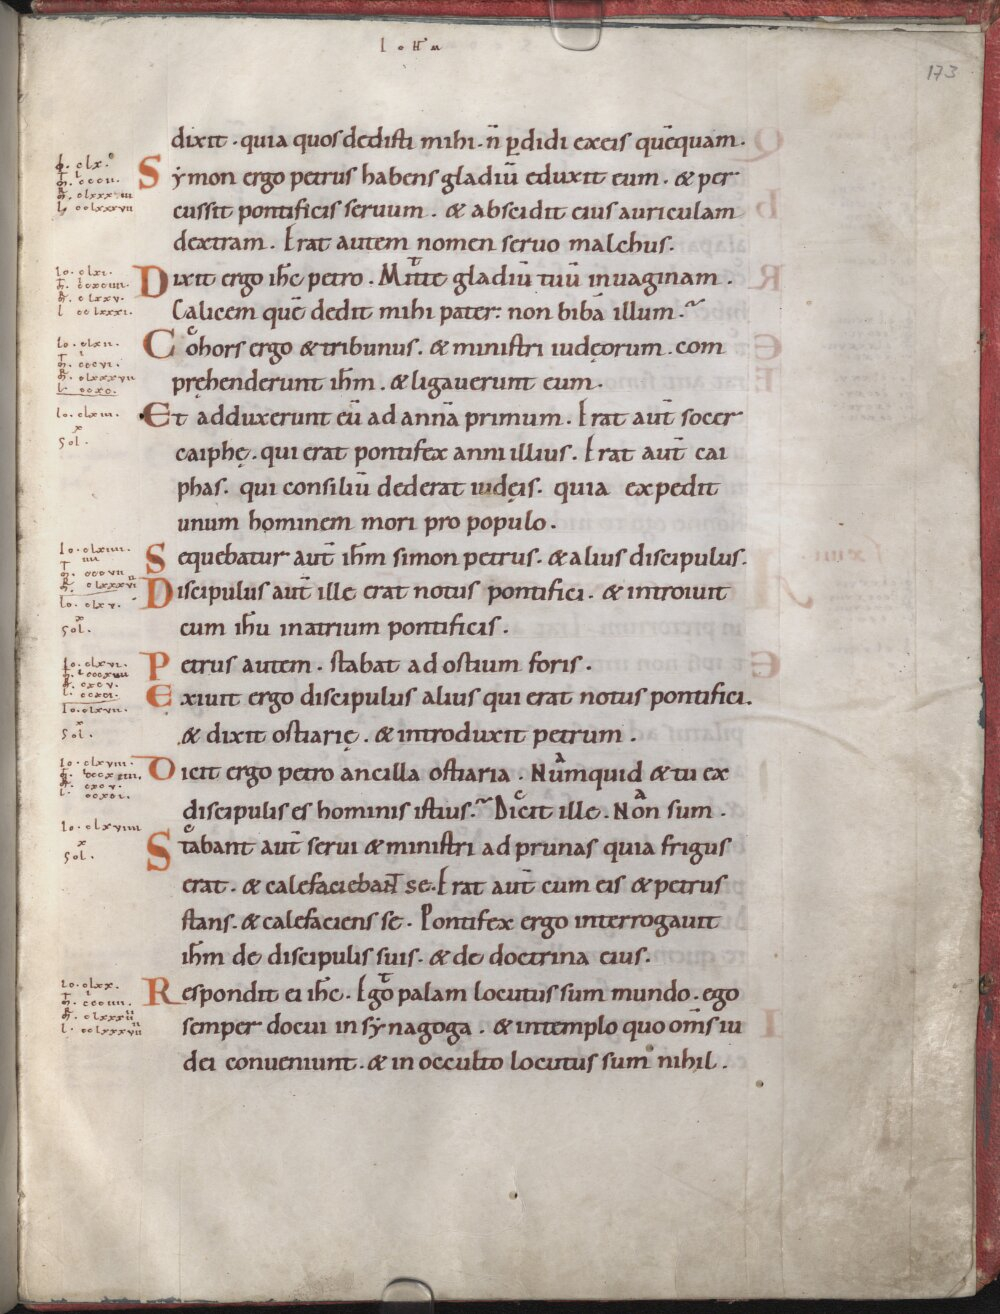 173
dixit · quia quos dedisti mihi · n̄ p̱didi ex eis quēquam ·
Symon ergo petrus habens gladiū eduxit eum · & per
cussit pontificis seruum · & abscidit eius auriculam
dextram · Erat autem nomen seruo malchus ·
Dixit ergo ih̄c petro · Mitte gladiū tuū in uaginam ·
Calicem quē dedit mihi pater: non bibā illum ·
Cohors ergo & tribunus · & ministri iudęorum · com
pręhenderunt ih̄m · & ligauerunt eum ·
Et adduxerunt eū ad annā primum · Erat aut̄ socer
caiphę · qui erat pontifex anni illius · Erat aut̄ cai
phas · qui consiliū dederat iudęis · quia expedit
unum hominem mori pro populo ·
Sequebatur aut̄ ih̄m simon petrus · & alius discipulus ·
Discipulus aut̄ ille erat notus pontifici · & introiuit
cum ih̄u in atrium pontificis ·
Petrus autem · stabat ad ostium foris ·
Exiuit ergo discipulus alius qui erat notus pontifici ·
& dixit ostiarię · & introduxit petrum ·
Dicit ergo petro ancilla ostiaria · Numquid & tu ex
discipulis es hominis istius · Dicit ille · Non sum ·
Stabant aut̄ serui & ministri ad prunas quia frigus
erat · & calefaciebant se · Erat aut̄ cum eis & petrus
stans · & calefaciens se · Pontifex ergo interrogauit
ih̄m de discipulis suis · & de doctrina eius ·
Respondit ei ih̄c · Ego palam locutus sum mundo · ego
semper docui in synagoga · & in templo quo om̄s iu
dei conueniunt · & in occulto locutus sum nihil ·